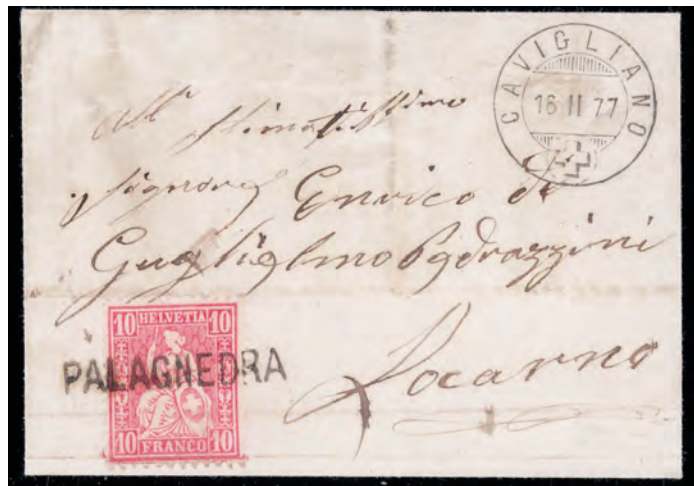 CAVIGLIANO
16 II 77
All' Stimatissimo
Signore Enrico di
Guglielmo Pedrazzini
Locarno
10 HELVETIA 10
PALAGNEDRA
10 FRANCO 10